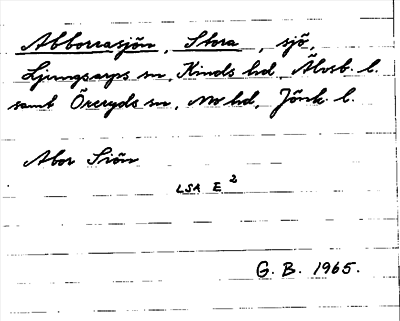 Abborrasjön, Stora, sjö,
Ljungsarps sn, Kinds hd, Älvsb. l.
samt Öreryds sn, Mo hd, Jönk. l.
Abor Siön
LSA E²
G. B. 1965.